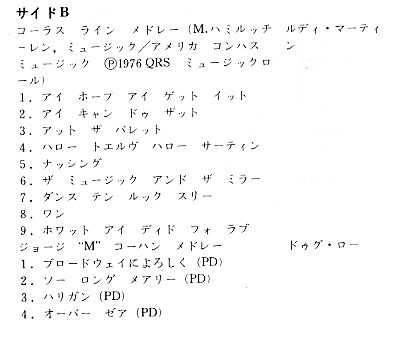 サイドB
コーラス ライン メドレー (M.ハミルッチ ルディ・マーティ
-レン, ミュージック/アメリカ コンパス ン
ミュージック Ⓟ1976 QRS ミュージックロ
ール)
1. アイ ホープ アイ ゲット イット
2. アイ キャン ドゥ ザット
3. アット ザ バレット
4. ハロー トエルヴ ハロー サーティン
5. ナッシング
6. ザ ミュージック アンド ザ ミラー
7. ダンス テン ルック スリー
8. ワン
9. ホワット アイ ディド フォ ラブ
ジョージ "M" コーハン メドレー ドゥグ・ロー
1. ブロードウェイによろしく (PD)
2. ソー ロング メアリー (PD)
3. ハリガン (PD)
4. オーバー ゼア (PD)